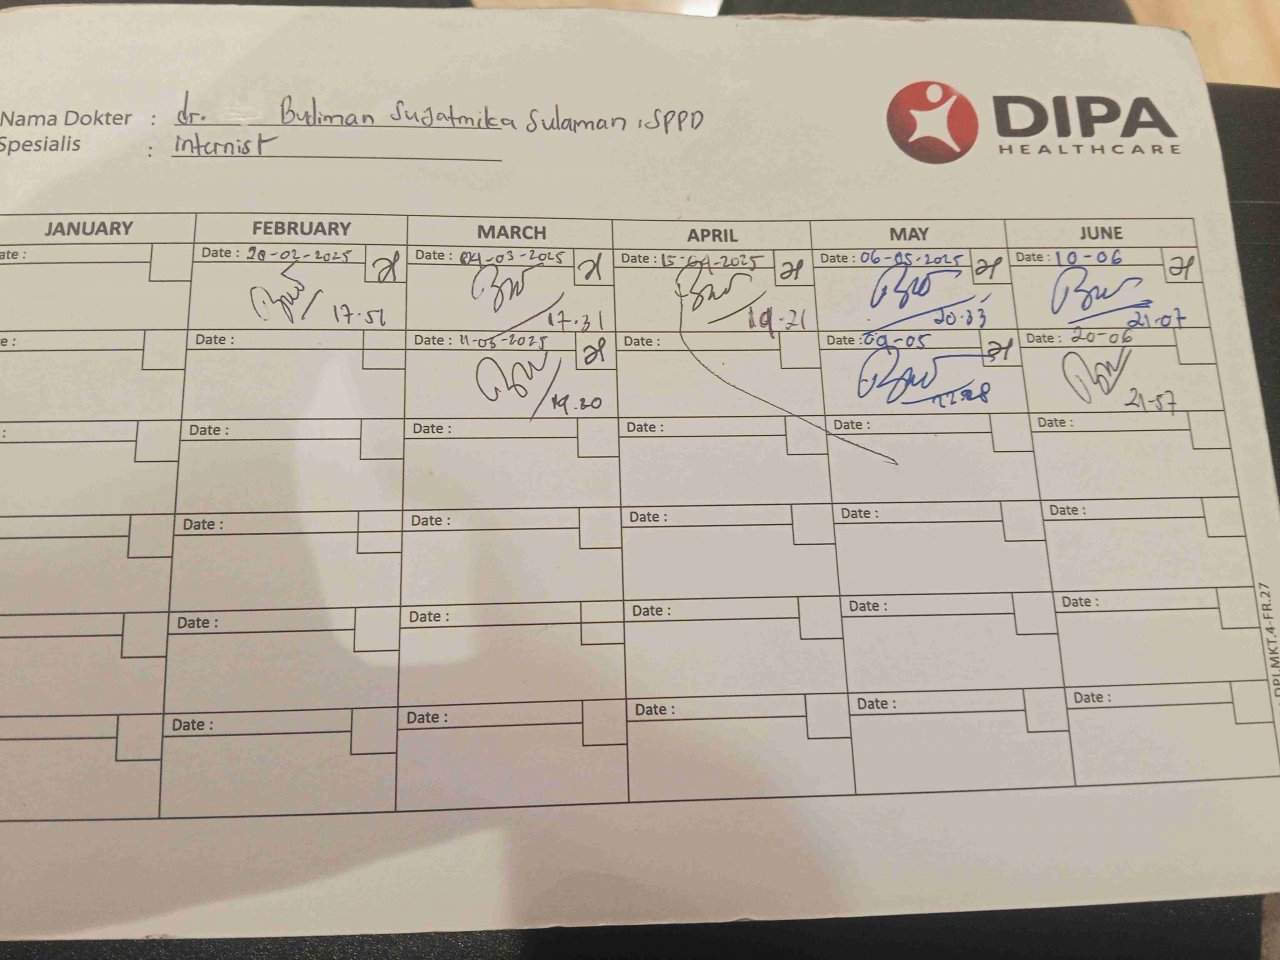 Nama Dokter : dr. Budiman Sujatmika Sulaman, SPPD
Spesialis : internist
DIPA
HEALTHCARE
JANUARY FEBRUARY MARCH APRIL MAY JUNE
ate : Date : 20-02-2025 Date : 04-03-2025 Date : 15-04-2025 Date : 06-05-2025 Date : 10-06
17.51 17.31 19.21 20.33 21-07
e : Date : Date : 11-03-2025 Date : Date : 09-05 Date : 20-06
19.20 21-57
: Date : Date : Date : Date : Date :
Date : Date : Date : Date : Date :
Date : Date : Date : Date : Date :
Date : Date : Date : Date : Date :
DPI.MKT.4-FR.27